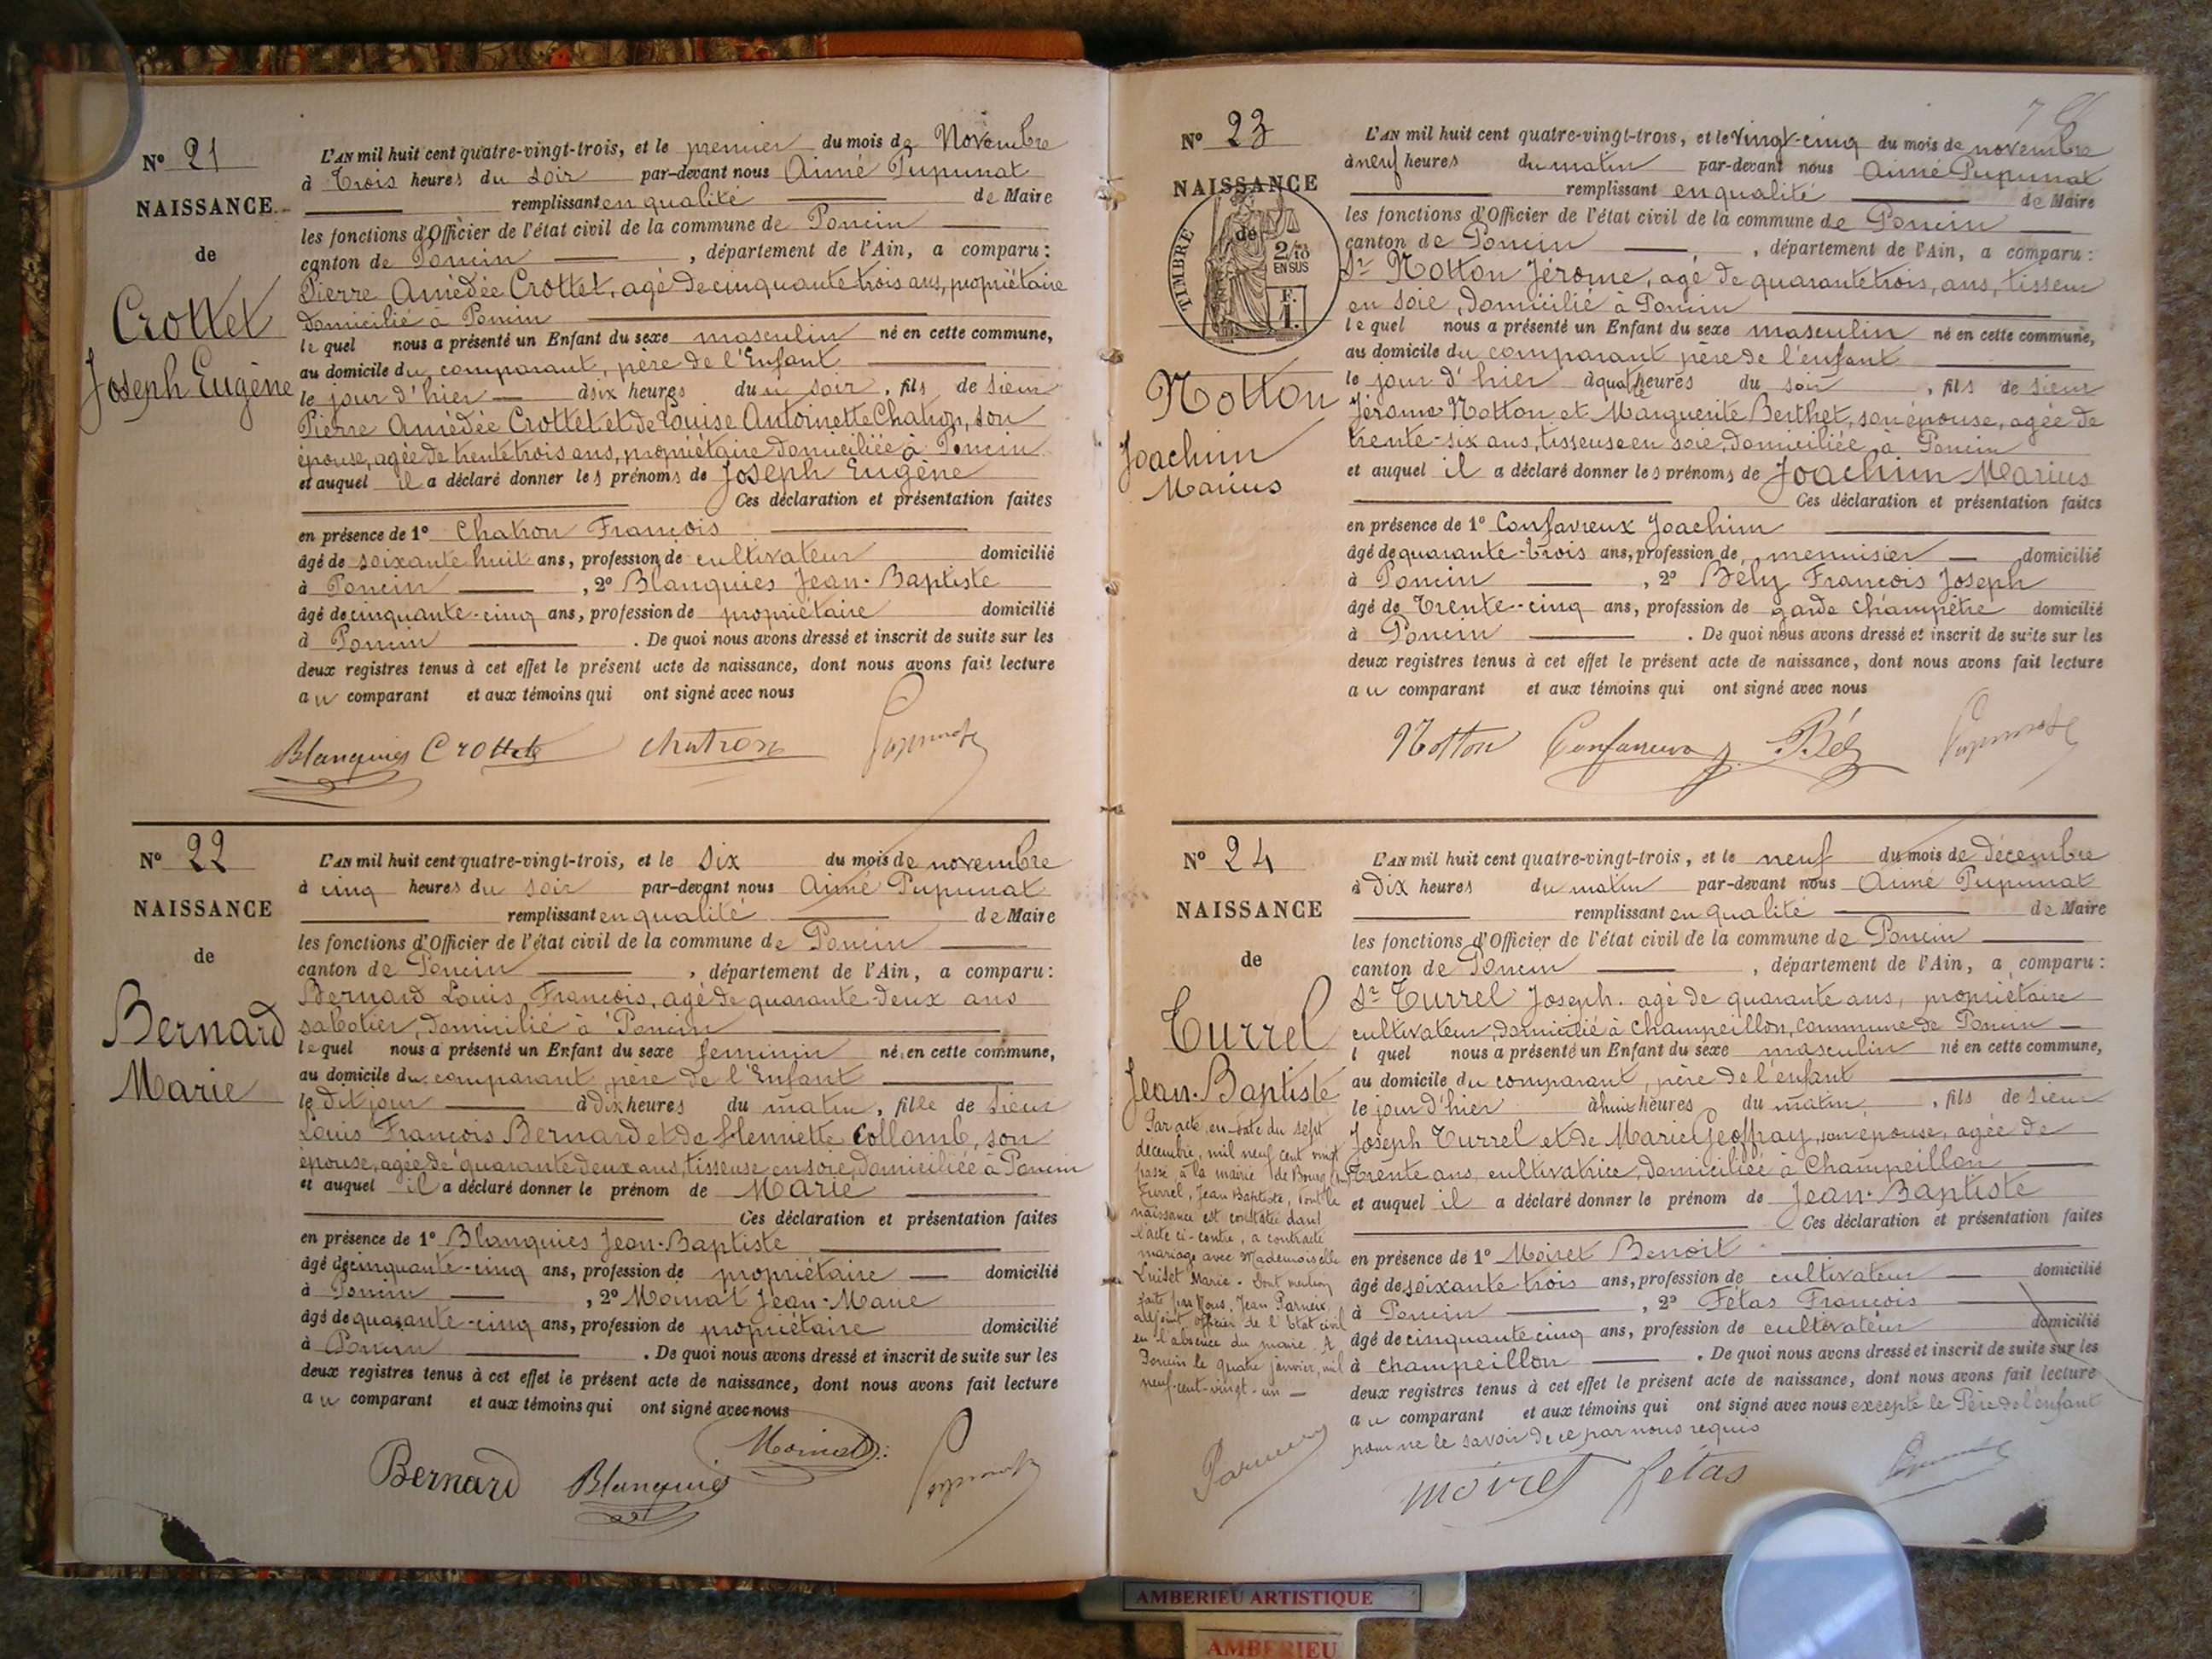 N° 21
NAISSANCE
de
Crottet
Joseph Eugène
L'AN mil huit cent quatre-vingt-trois, et le premier du mois de Novembre
à trois heures du soir par-devant nous Aimé Pupunat
remplissant en qualité de Maire
les fonctions d'Officier de l'état civil de la commune de Poncin
canton de Poncin , département de l'Ain, a comparu :
Pierre Amédée Crottet, agé de cinquante trois ans, propriétaire
domicilié à Poncin
lequel nous a présenté un Enfant du sexe masculin né en cette commune,
au domicile du comparant, père de l'Enfant
le jour d'hier à six heures du soir , fils de sieur
Pierre Amédée Crottet et de Louise Antoinette Chatron, son
épouse, agée de trente trois ans, propriétaire domiciliée à Poncin
et auquel il a déclaré donner les prénoms de Joseph Eugène
Ces déclaration et présentation faites
en présence de 1° Chatron François
âgé de soixante huit ans, profession de cultivateur domicilié
à Poncin , 2° Blanquies Jean-Baptiste
âgé de cinquante-cinq ans, profession de propriétaire domicilié
à Poncin . De quoi nous avons dressé et inscrit de suite sur les
deux registres tenus à cet effet le présent acte de naissance, dont nous avons fait lecture
au comparant et aux témoins qui ont signé avec nous
Blanquies Crottet chatron Pupunat
N° 22
NAISSANCE
de
Bernard
Marie
L'AN mil huit cent quatre-vingt-trois, et le six du mois de novembre
à cinq heures du soir par-devant nous Aimé Pupunat
remplissant en qualité de Maire
les fonctions d'Officier de l'état civil de la commune de Poncin
canton de Poncin , département de l'Ain, a comparu :
Bernard Louis François, agé de quarante-deux ans
sabotier, domicilié à Poncin
lequel nous a présenté un Enfant du sexe feminin né en cette commune,
au domicile du comparant père de l'Enfant
le dit jour à dix heures du matin, fille de sieur
Louis François Bernard et de Henriette Collomb, son
épouse, agée de quarante deux ans, tisseuse en soie, domiciliée à Poncin
et auquel il a déclaré donner le prénom de Marie
Ces déclaration et présentation faites
en présence de 1° Blanquies Jean-Baptiste
âgé de cinquante-cinq ans, profession de propriétaire domicilié
à Poncin , 2° Moinat Jean-Marie
âgé de quarante-cinq ans, profession de propriétaire domicilié
à Poncin . De quoi nous avons dressé et inscrit de suite sur les
deux registres tenus à cet effet le présent acte de naissance, dont nous avons fait lecture
au comparant et aux témoins qui ont signé avec nous
Bernard Blanquies Moinat Pupunat
N° 23
NAISSANCE
de
TIMBRE
2/10
EN SUS
F.
1.
Notton
Joachim
Marius
L'AN mil huit cent quatre-vingt-trois, et le vingt-cinq du mois de novembre
à neuf heures du matin par-devant nous Aimé Pupunat
remplissant en qualité de Maire
les fonctions d'Officier de l'état civil de la commune de Poncin
canton de Poncin , département de l'Ain, a comparu :
Sr Notton Jérôme, agé de quarante trois, ans, tisseur
en soie, domicilié à Poncin
lequel nous a présenté un Enfant du sexe masculin né en cette commune,
au domicile du comparant père de l'enfant
le jour d'hier à quatre heures du soir , fils de sieur
Jérôme Notton et Marguerite Berthet, son épouse, agée de
trente-six ans, tisseuse en soie, domiciliée à Poncin
et auquel il a déclaré donner les prénoms de Joachim Marius
Ces déclaration et présentation faites
en présence de 1° Confavreux Joachim
âgé de quarante-trois ans, profession de menuisier domicilié
à Poncin , 2° Bély François Joseph
âgé de trente-cinq ans, profession de garde champêtre domicilié
à Poncin . De quoi nous avons dressé et inscrit de suite sur les
deux registres tenus à cet effet le présent acte de naissance, dont nous avons fait lecture
au comparant et aux témoins qui ont signé avec nous
Notton Confavreux J. Bély Pupunat
N° 24
NAISSANCE
de
Turrel
Jean-Baptiste
Par acte, en date du sept
décembre, mil neuf cent vingt
passé à la mairie de Bourg (Ain)
Turrel, Jean Baptiste, dont la
naissance est constatée dans
l'acte ci-contre, a contracté
mariage avec Mademoiselle
Luiset Marie - Dont mention
faite par Nous, Jean Parneix,
adjoint, officier de l'Etat civil
en l'absence du maire. A
Poncin le quatre janvier, mil
neuf-cent-vingt-un
Parneix
L'AN mil huit cent quatre-vingt-trois, et le neuf du mois de décembre
à dix heures du matin par-devant nous Aimé Pupunat
remplissant en qualité de Maire
les fonctions d'Officier de l'état civil de la commune de Poncin
canton de Poncin , département de l'Ain, a comparu :
Sr Turrel Joseph. agé de quarante ans, propriétaire
cultivateur, domicilié à Champeillon, commune de Poncin
l quel nous a présenté un Enfant du sexe masculin né en cette commune,
au domicile du comparant, père de l'enfant
le jour d'hier à huit heures du matin , fils de sieur
Joseph Turrel et de Marie Geoffray, son épouse, agée de
trente ans, cultivatrice, domiciliée à Champeillon
et auquel il a déclaré donner le prénom de Jean-Baptiste
Ces déclaration et présentation faites
en présence de 1° Moiret Benoit
âgé de soixante trois ans, profession de cultivateur domicilié
à Poncin , 2° Fétas François
âgé de cinquante cinq ans, profession de cultivateur domicilié
à champeillon . De quoi nous avons dressé et inscrit de suite sur les
deux registres tenus à cet effet le présent acte de naissance, dont nous avons fait lecture
au comparant et aux témoins qui ont signé avec nous excepté le Père de l'enfant
pour ne le savoir de ce par nous requis
moiret fetas Pupunat
AMBERIEU ARTISTIQUE
AMBERIEU